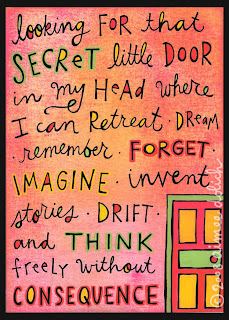 looking FOR that
SECReT little DOOR
in my HeAD where
I can RetReat · DReam
· remember · FORGET ·
IMAGINE · invent
stories · DRIFT ·
and THINK
freely without
CONSEQUENCE